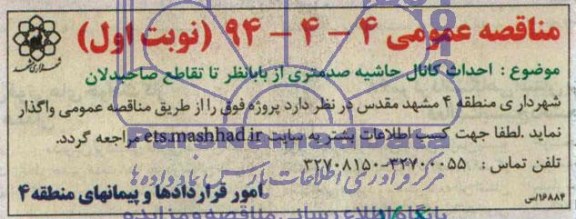 مناقصه عمومی ۴ - ۴ - ۹۴ (نوبت اول)
موضوع : احداث کانال حاشیه صدمتری از بابانظر تا تقاطع صاحبدلان
شهرداری منطقه ۴ مشهد مقدس در نظر دارد پروژه فوق را از طریق مناقصه عمومی واگذار
نماید .لطفا جهت کسب اطلاعات بیشتر به سایت ets.mashhad.ir مراجعه گردد.
تلفن تماس : ۳۲۷۰۰۰۵۵-۳۲۷۰۸۱۵۰
امور قراردادها و پیمانهای منطقه ۴
۱۶۸۸۴/س
ParsNamadData
مرکز فرآوری اطلاعات پارس نماد داده ها